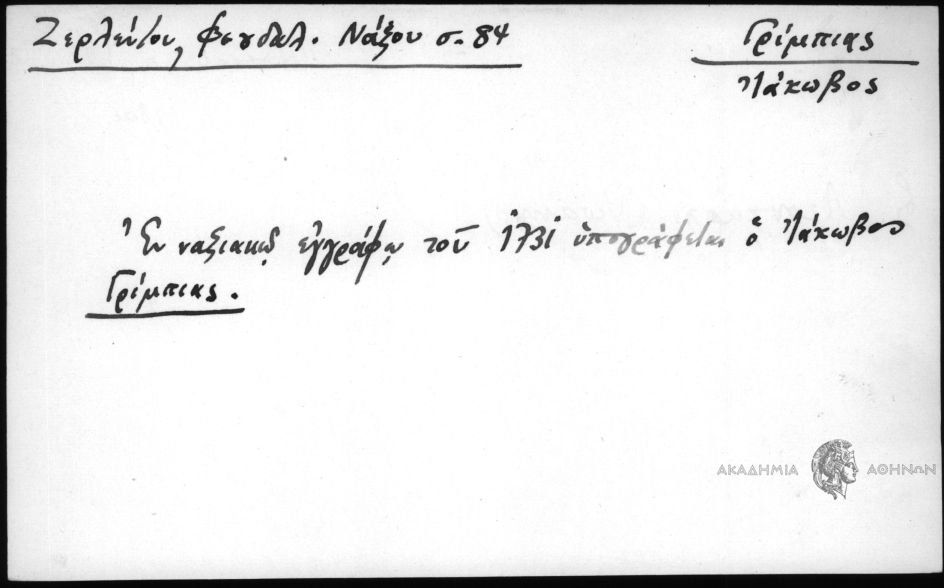 Ζερλέντου, Φεουδαλ. Νάξου σ. 84
Γρίμπιας
Ἰάκωβος
Ἐν ναξιακῷ ἐγγράφῳ τοῦ 1731 ὑπογράφεται ὁ Ἰάκωβος
Γρίμπιας.
ΑΚΑΔΗΜΙΑ ΑΘΗΝΩΝ